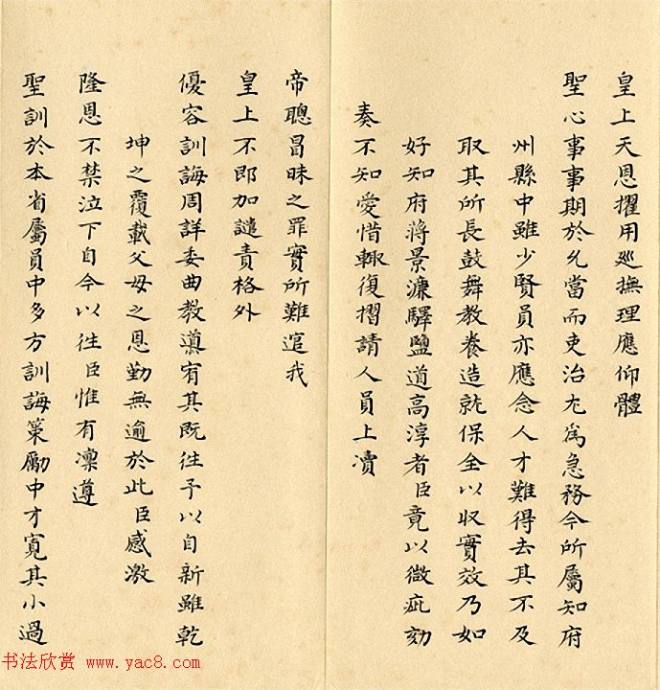 皇上天恩擢用巡撫理應仰體
聖心事事期於允當而吏治尤為急務今所屬知府
州縣中雖少賢員亦應念人才難得去其不及
取其所長鼓舞教養造就保全以收實效乃如
好知府將景濂驛鹽道高淳者臣竟以微疵劾
奏不知愛惜輒復摺請人員上瀆
帝聰冒昧之罪實所難逭我
皇上不即加譴責格外
優容訓誨周詳委曲教導宥其既往予以自新雖乾
坤之覆載父母之恩勤無逾於此臣感激
隆恩不禁泣下自今以往臣惟有凜遵
聖訓於本省屬員中多方訓誨策勵中才寬其小過
书法欣赏 www.yac8.com